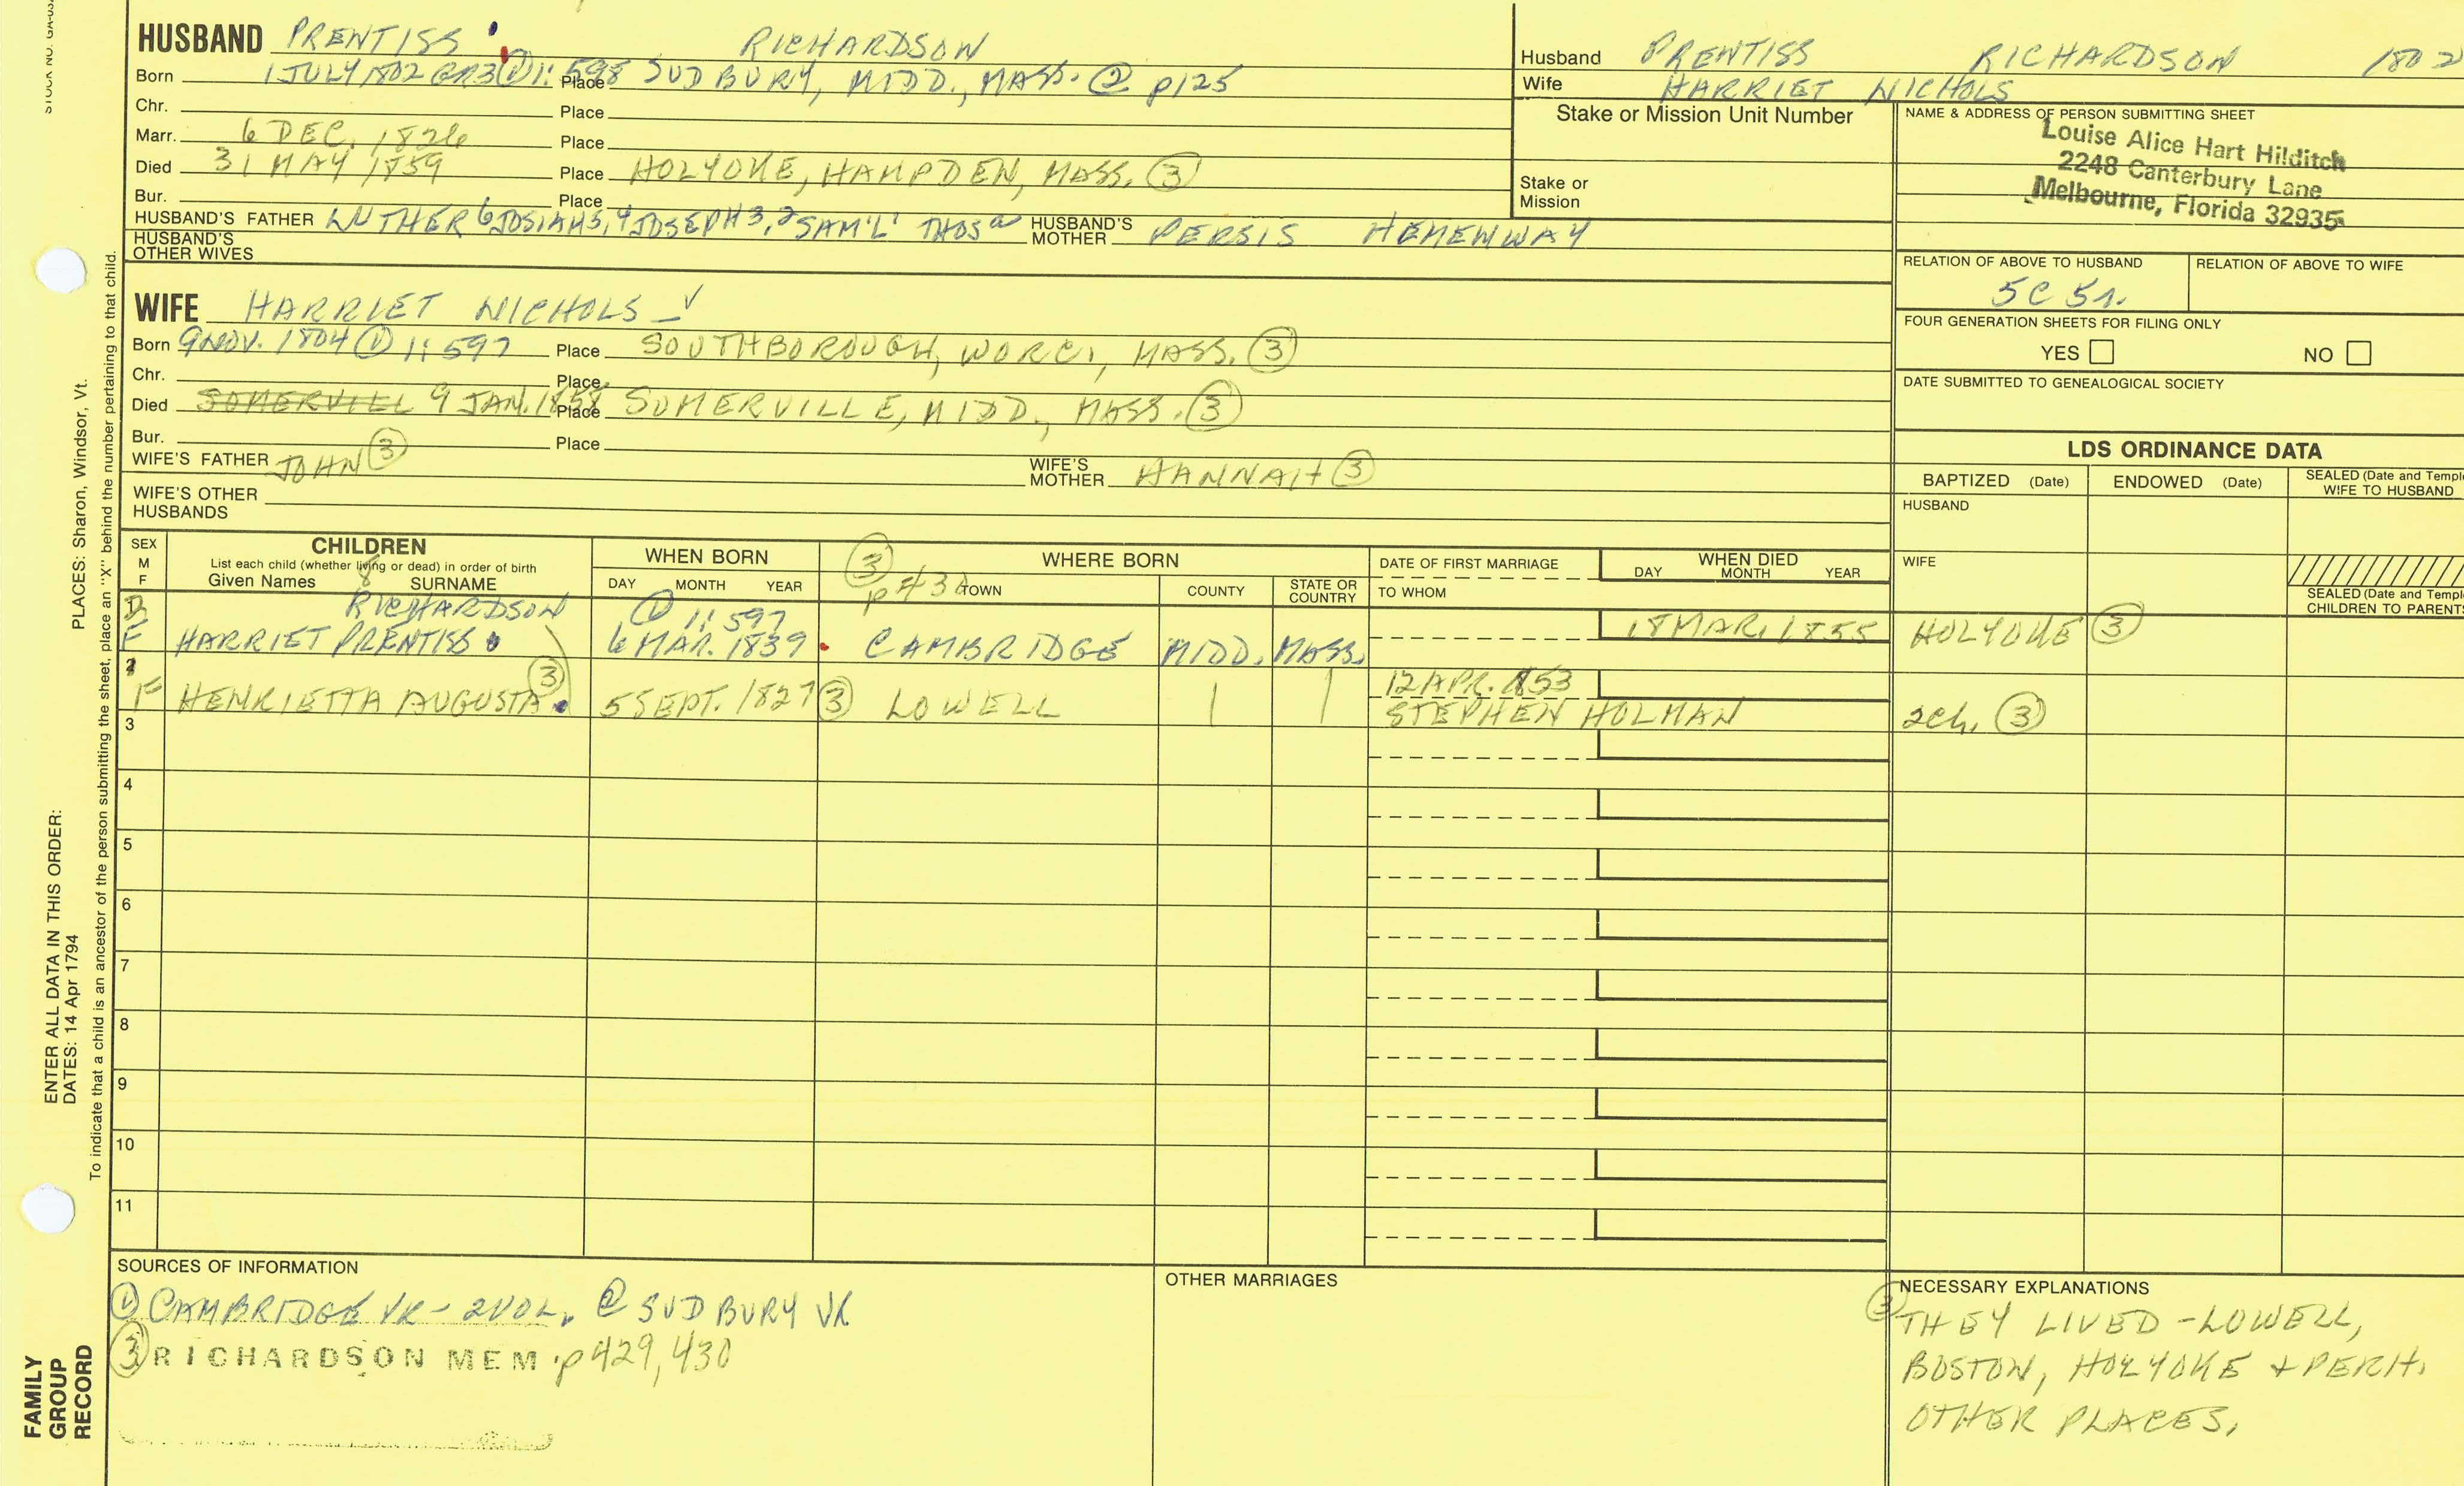 HUSBAND PRENTISS RICHARDSON
Born 1 JULY 1802 GR3 ① 1:598 Place SUDBURY, MIDD., MASS. ② p125
Chr. Place
Marr. 6 DEC. 1826 Place
Died 31 MAY 1859 Place HOLYOKE, HAMPDEN, MASS. ③
Bur. Place
HUSBAND'S FATHER LUTHER 6 JOSIAH 5, 4 JOSEPH 3, 2 SAM'L' THOS a HUSBAND'S MOTHER PERSIS HEMENWAY
HUSBAND'S OTHER WIVES
Husband PRENTISS RICHARDSON 1802
Wife HARRIET NICHOLS
Stake or Mission Unit Number
Stake or Mission
NAME & ADDRESS OF PERSON SUBMITTING SHEET
Louise Alice Hart Hilditch
2248 Canterbury Lane
Melbourne, Florida 32935
RELATION OF ABOVE TO HUSBAND RELATION OF ABOVE TO WIFE
5C 5r.
FOUR GENERATION SHEETS FOR FILING ONLY
YES NO
DATE SUBMITTED TO GENEALOGICAL SOCIETY
WIFE HARRIET NICHOLS ✓
Born 9 NOV. 1804 ① 1:597 Place SOUTHBOROUGH, WORC., MASS. ③
Chr. Place
Died SOMERVILL 9 JAN. 1858 Place SOMERVILLE, MIDD., MASS. ③
Bur. Place
WIFE'S FATHER JOHN ③ WIFE'S MOTHER HANNAH ③
WIFE'S OTHER HUSBANDS
LDS ORDINANCE DATA
BAPTIZED (Date) ENDOWED (Date) SEALED (Date and Templ
WIFE TO HUSBAND
HUSBAND
WIFE
SEALED (Date and Templ
CHILDREN TO PARENTS
SEX M F
CHILDREN
List each child (whether living or dead) in order of birth
Given Names 8 SURNAME
WHEN BORN
DAY MONTH YEAR
③ p 430
WHERE BORN
TOWN COUNTY STATE OR COUNTRY
DATE OF FIRST MARRIAGE
TO WHOM
WHEN DIED
DAY MONTH YEAR
RICHARDSON ① 1:597
F HARRIET PRENTISS 6 MAR. 1839 CAMBRIDGE MIDD. MASS. 18 MAR. 1855 HOLYOKE ③
F HENRIETTA AUGUSTA ③ 5 SEPT. 1827 ③ LOWELL 12 APR. 1853
STEPHEN HOLMAN 2ch. ③
3
4
5
6
7
8
9
10
11
SOURCES OF INFORMATION
① CAMBRIDGE VR - 2 VOL. ② SUDBURY VR
③ RICHARDSON MEM. p 429, 430
OTHER MARRIAGES
NECESSARY EXPLANATIONS
③ THEY LIVED - LOWELL,
BOSTON, HOLYOKE + PERH.
OTHER PLACES.
PLACES: Sharon, Windsor, Vt.
ENTER ALL DATA IN THIS ORDER:
DATES: 14 Apr 1794
To indicate that a child is an ancestor of the person submitting the sheet, place an "X" behind the number pertaining to that child.
FAMILY
GROUP
RECORD